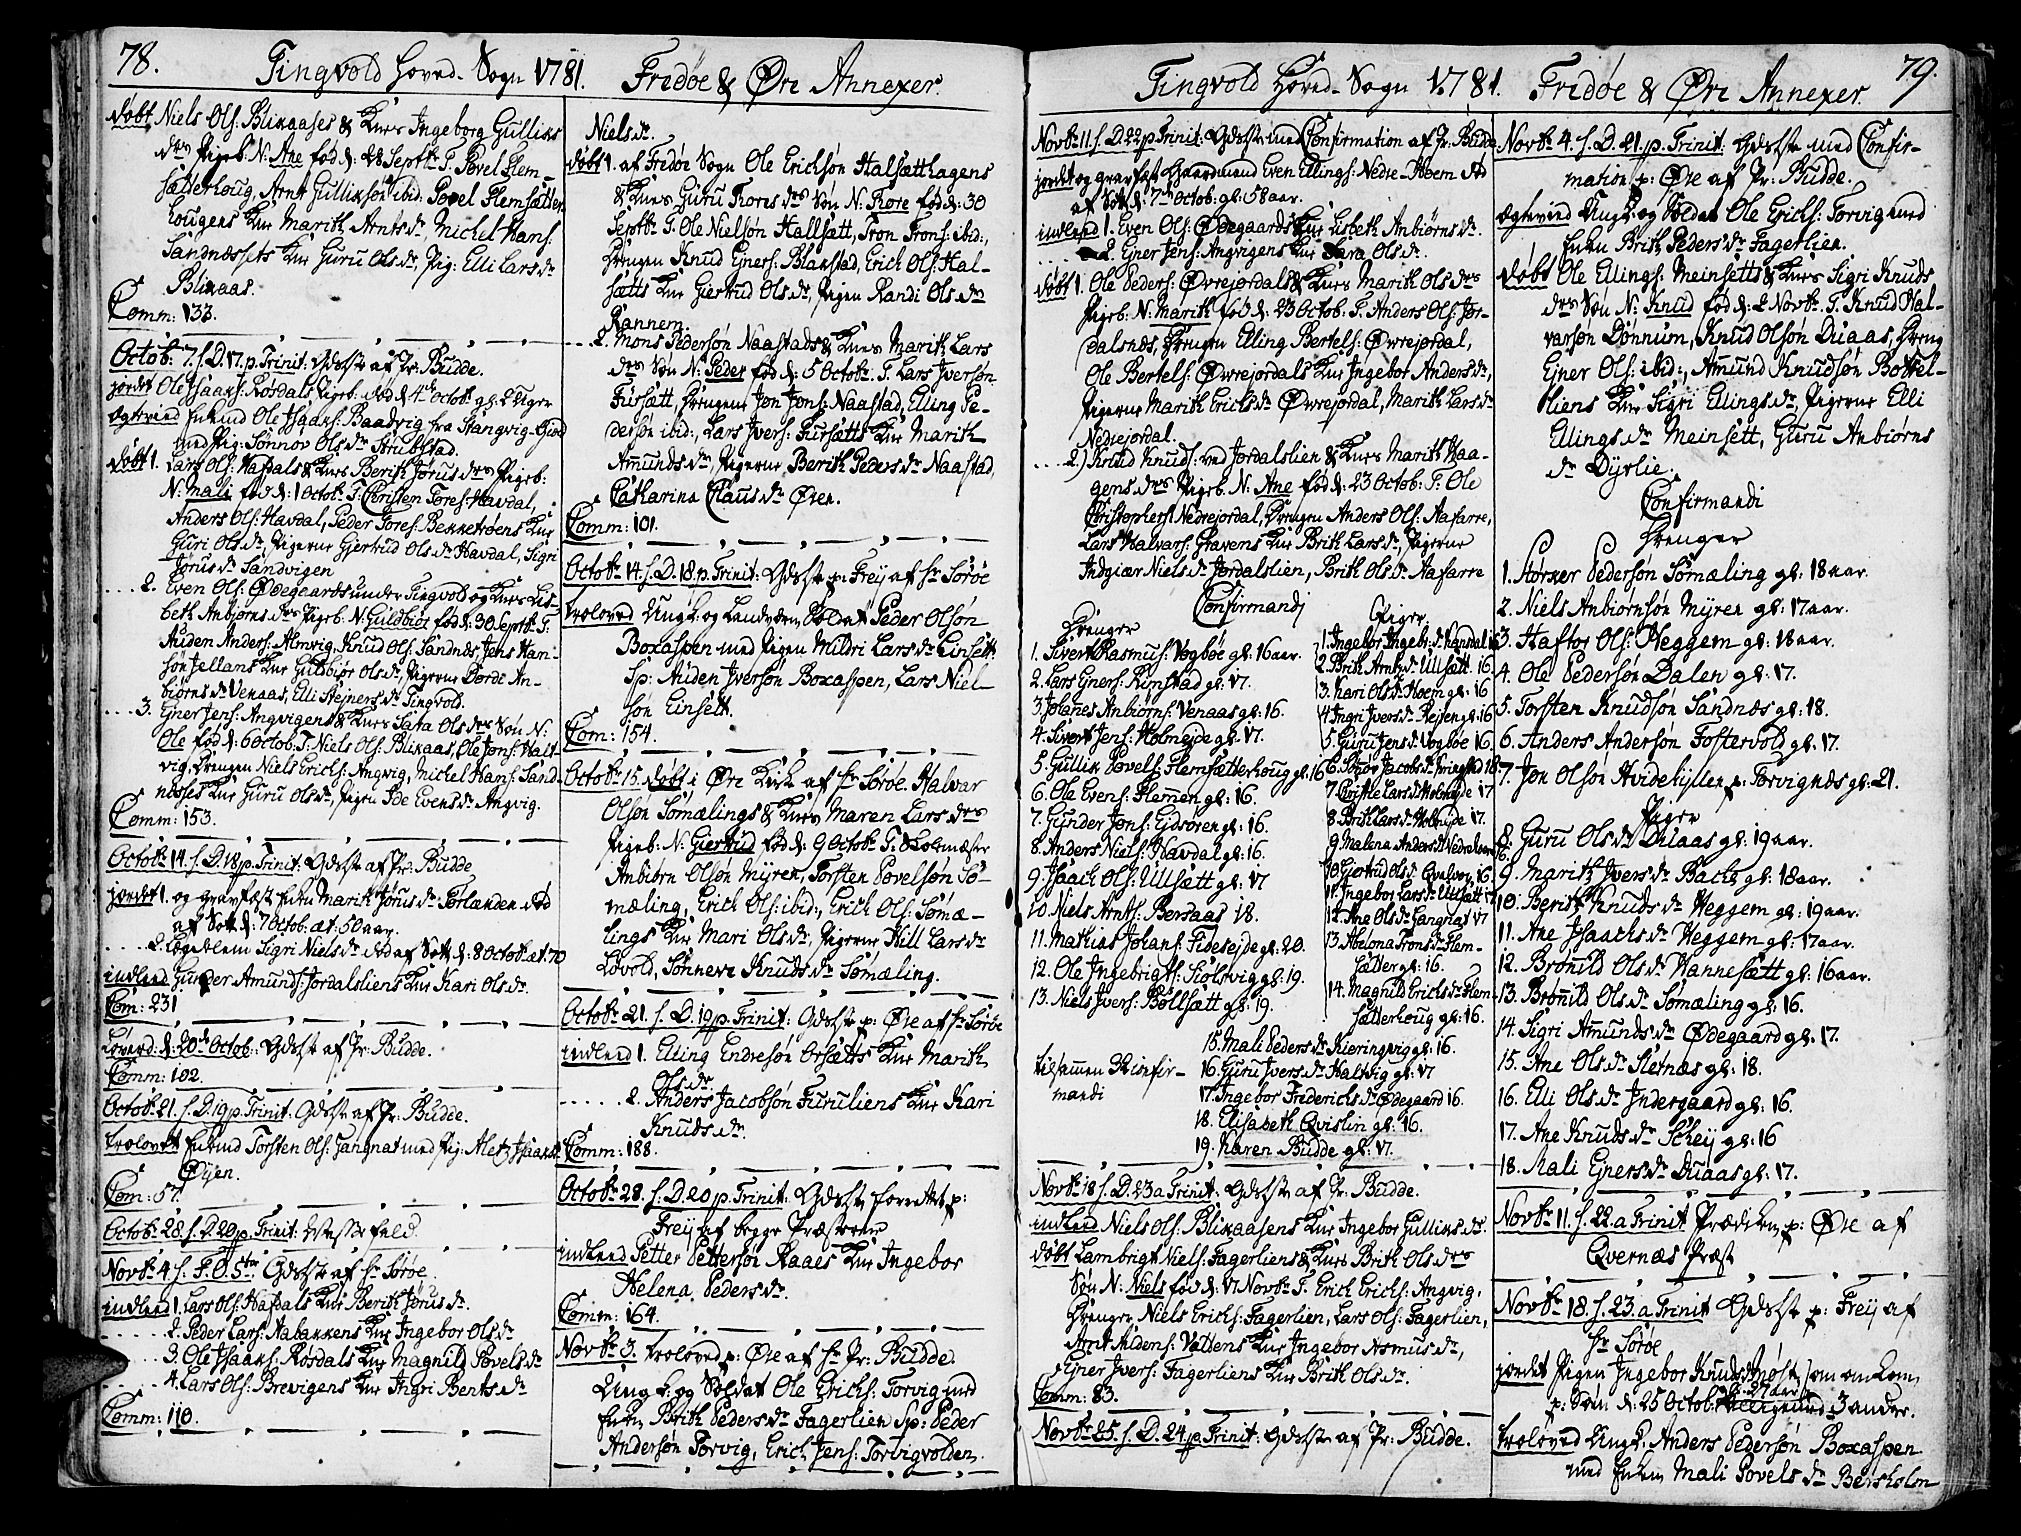 78.
Tingvold Hoved-Sogn 1781. Fredøe & Øre Annexer.
døbt Niels Ols: Blikaases & Knes Ingeborg Gulliks
drs Pigeb: N: Ane fød d: 28 Septbr T. Povel Flem-
sætterhoug, Arnt Gulliksøn ibid: Povel Flemsætter
hougens Kne Marith Arntsdr, Michel Hans:
Sandnæssets Kne Guru Olsdr, Pig: Elli Larsdr
Blikaas.
Comm: 133.
Octob: 7. f. D. 17. p. Trinit: Gdsst af Pr: Budde.
jordet Ole Isaaks: Røsdals Pigeb: død d: 4de Octobr gl: 2 Uger
Ægteviед Enkmd Ole Isaaks: Baadvig fra Stangvig Gield
med Pig: Sønnov Olsdr Strubstad.
døbt 1. Lars Ols: Hafdals & Knes Berith Jørusdrs Pigeb:
N: Mali fød d: 1 Octobr T: Christen Tores: Havdal,
Anders Ols: Havdal, Peder Tores: Bekketrøens Kne
Guri Olsdr, Pigerne Gjertrud Olsdr Havdal, Sigri
Jørusdr Sandvigen
2. Even Ols: Ødegaards under Tingvold og Knes Lis-
beth Anbiørnsdrs Pigeb: N: Guldbiør fød d: 30 Septbr T:
Auden Anders: Almvig, Knud Ols: Sandnæs, Jens Han-
søn Jellans Kne Guldbiør Olsdr, Pigerne Dorde An-
biørnsdr Venaas, Elli Stejnersdr Tingvold.
3. Ejner Jens: Angvigens & Knes Sara Olsdrs Søn N:
Ole fød d: 6 Octob: T: Niels Ols: Blikaas, Ole Jons: Halt-
vig, Drengen Niels Erichs: Angvig, Michel Hans: Sand-
næsses Kne Guru Olsdr, Pigen Ide Evensdr Angvig.
Comm: 153.
Octobr 14. f. D. 18 p. Trinit: Gdsst af Pr: Budde
jordet 1. og gravfæst Enken Marith Jørusdr Sørlanden død
af Sott d: 7 Octob: æt: 50 aar.
2. Lægdslem Sigri Nielsdr død af Sott d: 8 Octob: æt: 70
indleed Gunder Amunds: Jordalsliens Kne Kari Olsdr.
Com: 231
Løverd: d: 20de Octob: Gdsst af Pr: Budde.
Comm: 102.
Octob: 21. f. D. 19 p. Trinit: Gdsst af Pr: Budde.
trolovet Enkmd Torsten Ols: Langnat med Pig: Aletz Isaaksdr
Øyen.
Com: 57.
Octobr 28. f. D. 20 p. Trinit: Messefald.
Novbr 4. f. F. O. 5te Gdsst af Hr Sørøe.
indleed 1. Lars Ols: Hafdals Kne Berith Jørusdr.
2. Peder Lars: Aabakkens Kne Ingebor Olsdr
3. Ole Isaaks: Røsdals Kne Magnild Povelsdr
4. Lars Ols: Brevigens Kne Ingri Bentsdr
Comm: 110.
Nielsdr.
døbt 1. af Fredøe Sogn Ole Erichsøn Halsætthagens
& Knes Guru Toresdrs Søn N: Tore fød d: 30
Septbr T. Ole Nielsøn Hallsætt, Tron Trons: ibid:,
Drengen Knud Ejners: Blakstad, Erich Ols: Hal-
sætts Kne Giertrud Olsdr, Pigen Randi Olsdr
Rannem.
2. Mons Pedersøn Naastads & Knes Marith Lars
drs Søn N: Peder fød d: 5 Octobr T. Lars Iversøn
Fursætt, Drengene Jon Jons: Naastad, Elling Pe-
dersøn ibid:, Lars Ivers: Fursætts Kne Marith
Amundsdr, Pigerne Berith Pedersdr Naastad,
Catharina Clausdr Øren.
Comm: 101.
Octobr 14. f. D. 18. p. Trinit: Gdsst p: Frey af Hr Sørøe
trolovet Ungk: og Landværn Soldat Peder Olsøn
Boxaspen med Pigen Mildri Larsdr Einsett.
Sp: Auden Iversøn Boxaspen, Lars Niel-
søn Einsett.
Com: 154.
Octobr 15. døbt i Øre Kirk af Hr Sørøe Halvar
Olsøn Sømælings & Knes Maren Larsdrs
Pigeb: N: Giertrud fød d: 9 Octobr T. Skolemester
Anbiørn Olsøn Myren, Torsten Povelsøn Sø-
mæling, Erich Ols: ibid:, Erich Ols: Sømæ-
lings Kne Mari Olsdr, Pigerne Kill Larsdr
Lovold, Sønneve Knudsdr Sømæling.
Octobr 21. f. D. 19 p. Trinit: Gdsst p: Øre af Hr Sørøe
indleed 1. Elling Endresøn Orsætts Kne Marith
Olsdr
2. Anders Jacobsøn Furuliens Kne Kari
Knudsdr.
Comm: 188.
Octobr 28. f. D. 20 p. Trinit: Gdsst forrettet p:
Freij af begge Præsterne
indleed Petter Pettersøn Raaes Kne Ingebor
Helena Pedersdr.
Comm: 164.
Novbr 3. troloved p: Øre af Hr Pr: Budde
Ungk: og Soldat Ole Erichs: Torvig med
Enken Brith Pedersdr Fagerlien Sp: Peder
Andersøn Torvig, Erich Jens: Torvigvolden.
79.
Tingvold Hoved-Sogn 1781. Fridøe & Øre Annexer.
Novbr 11. f. D. 22 p. Trinit: Gdsst med Confirmation af Pr: Budde
jordet og gravfæst Gaardmand Even Ellings: Nedre-Hoem død
af Sott d: 7de Octob: gl: 58 aar.
indleed 1. Even Ols: Ødegaards Kne Lisbeth Anbiørnsdr.
2. Ejner Jens: Angvigens Kne Sara Olsdr.
døbt 1. Ole Peders: Øvrejordals & Knes Marith Olsdrs
Pigeb: N: Marith fød d: 23 Octob: T. Anders Ols: Jor-
dalsnæs, Drengen Elling Bertels: Øvrejordal,
Ole Bertels: Øvrejordals Kne Ingebor Andersdr,
Pigerne Marith Ericksdr Øvrejordal, Marith Larsdr
Nedrejordal.
2) Knud Knuds: ved Jordalslien & Knes Marith Haa-
gensdrs Pigeb: N: Ane fød d: 23 Octob: T. Ole
Christophers: Nedrejordal, Drengen Anders Ols: Aafarre,
Lars Halvars: Gravens Kne Brith Larsdr, Pigerne
Indgiær Nielsdr Jordalslien, Brith Olsdr Aafarre
Confirmandj
Drenger
1. Sivert Rasmus: Vogbøe gl: 16 aar.
2. Lars Ejners: Rimstad gl: 17.
3 Johanes Anbiørns: Venaas gl: 16.
4. Sivert Jens: Holmejde gl: 17.
5. Gullik Povels: Flemsætterhoug gl: 16
6. Ole Evens: Flemmen gl: 16.
7. Gunder Jons: Eidsøren gl: 16.
8. Anders Niels: Havdal gl: 16.
9. Isaach Ols: Ullsætt gl: 17
10. Niels Arnts: Bersaas 18.
11. Mathias Johans: Fidesejde gl: 20.
12. Ole Ingebrigts: Siølsvig gl: 19.
13. Niels Ivers: Bøllsætt gl: 19.
tilsammen 32 confir-
mandi
Piger
1. Ingebor Ingebr:dr Kandal 16
2. Brith Arntsdr Ullsætt 16.
3. Kari Olsdr Hoem gl: 16
4. Ingri Iversdr Rejten gl: 16
5. Guru Jensdr Vogbøe 16
7 Birthe Larsdr Holmejde 17
8 Brith Larsdr Holmejde 17.
9. Malena Andersdr
10. Gjertrud Olsdr 16.
11. Ingebor Larsdr Ullsætt 17
12. Ane Olsdr Langnat 17
13. Abelona Tronsdr Flem-
sætter gl: 16.
14. Magnild Erichsdr Flem-
sætterhoug gl: 16.
15. Mali Pedersdr Kieringvig gl: 16.
16. Guru Iversdr Haltvig gl: 17
17. Ingebor Friderichsdr Ødegaard 16.
18. Elisabeth Qvislin gl: 16.
19. Karen Budde gl: 17.
Novbr 18 f. D. 23 a Trinit: Gdsst af Pr: Budde.
indleed Niels Ols: Blikaasens Kne Ingebor Gulliksdr.
døbt Lambrigt Niels: Fagerliens & Knes Brith Olsdrs
Søn N: Niels fød d: 17 Novbr T. Erich Erichs: Angvig,
Drenger Niels Erichs: Fagerlien, Lars Ols: Fagerlien,
Arnt Aldens: Vullens Kne Ingebor Asmusdr,
Ejner Ivers: Fagerliens Kne Brith Olsdr.
Comm: 83.
Novbr 25. f. D. 24 p. Trinit: Gdsst af Pr: Budde.
Novbr 4. f. D. 21. p. Trinit: Gdsst med Confir-
mation p: Øre af Pr: Budde.
Ægtevied Ungk: og Soldat Ole Erichs: Torvig med
Enken Brith Pedersdr Fagerlien.
døbt Ole Ellings: Meinsetts & Knes Sigri Knuds
drs Søn N: Knud fød d: 2 Novbr T. Knud Hal-
varsøn Dønnum, Knud Olsøn Duaas, Dreng
Ejner Ols: ibid:, Amund Knudsøn Bottel-
liens Kne Sigri Ellingsdr, Pigerne Elli
Ellingsdr Meinsett, Guru Anbiørns
dr Dyrlie.
Confirmandi
Drenger
1. Størker Pedersøn Sømæling gl: 18 aar.
2. Niels Anbiørnsøn Myren gl: 17 aar.
3. Haftor Ols: Heggem gl: 18 aar.
4. Ole Pedersøn Dalen gl: 17.
5. Torsten Knudsøn Sandnæs gl: 18.
6. Anders Andersøn Fostervold gl: 17.
7. Jon Olsøn Hvidebyllen p: Torvignæs gl: 21.
Piger
8. Guru Olsdr Duaas gl: 19 aar.
9. Marith Iversdr Bach gl: 18 aar.
10. Berith Knudsdr Heggem gl: 19 aar.
11. Ane Isaachsdr Heggem gl: 17 aar.
12. Brønild Olsdr Hannesætt gl: 16 aar.
13. Brønild Olsdr Sømæling gl: 16.
14. Sigri Amundsdr Ødegaard gl: 17.
15. Ane Olsdr Sletnæs gl: 18.
16. Elli Olsdr Indergaard gl: 16.
17. Ane Knudsdr Schey gl: 16
18. Mali Ejnersdr Duaas gl: 17.
Novbr 11. f. 22. a Trinit Prædiken p: Øre af
Qvernæs Præst
Novbr 18. f. 23. a Trinit Gdsst p: Freij af
Hr Sørøe
jordet Pigen Ingebor Knudsdr som omkom
p: Søen d: 25 Octob: 3 andre.
gl: 27 aar
troloved Ungk: Anders Pedersøn Boxaspen
med Enken Mali Povelsdr Bersholm